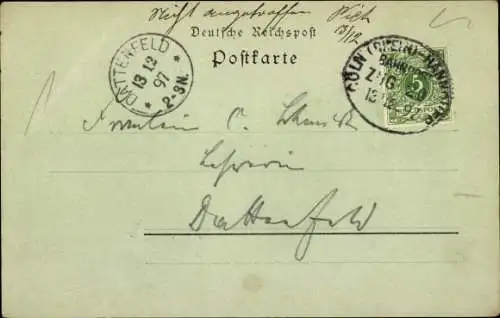 Nicht angetroffen
13/12
Deutsche Reichspost
Postkarte
DATTENFELD
13 12
97
2-3N.
CÖLN (RHEIN)-HANNOVER
BAHN
ZUG
5
Fräulein C.
Lehrerin
Dattenfeld